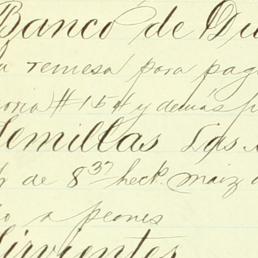 Banco de Du
remesa para pag
#154 y demás p
Semillas Lgs.
de 8 37 heck. maiz
a peones
Sirvientes